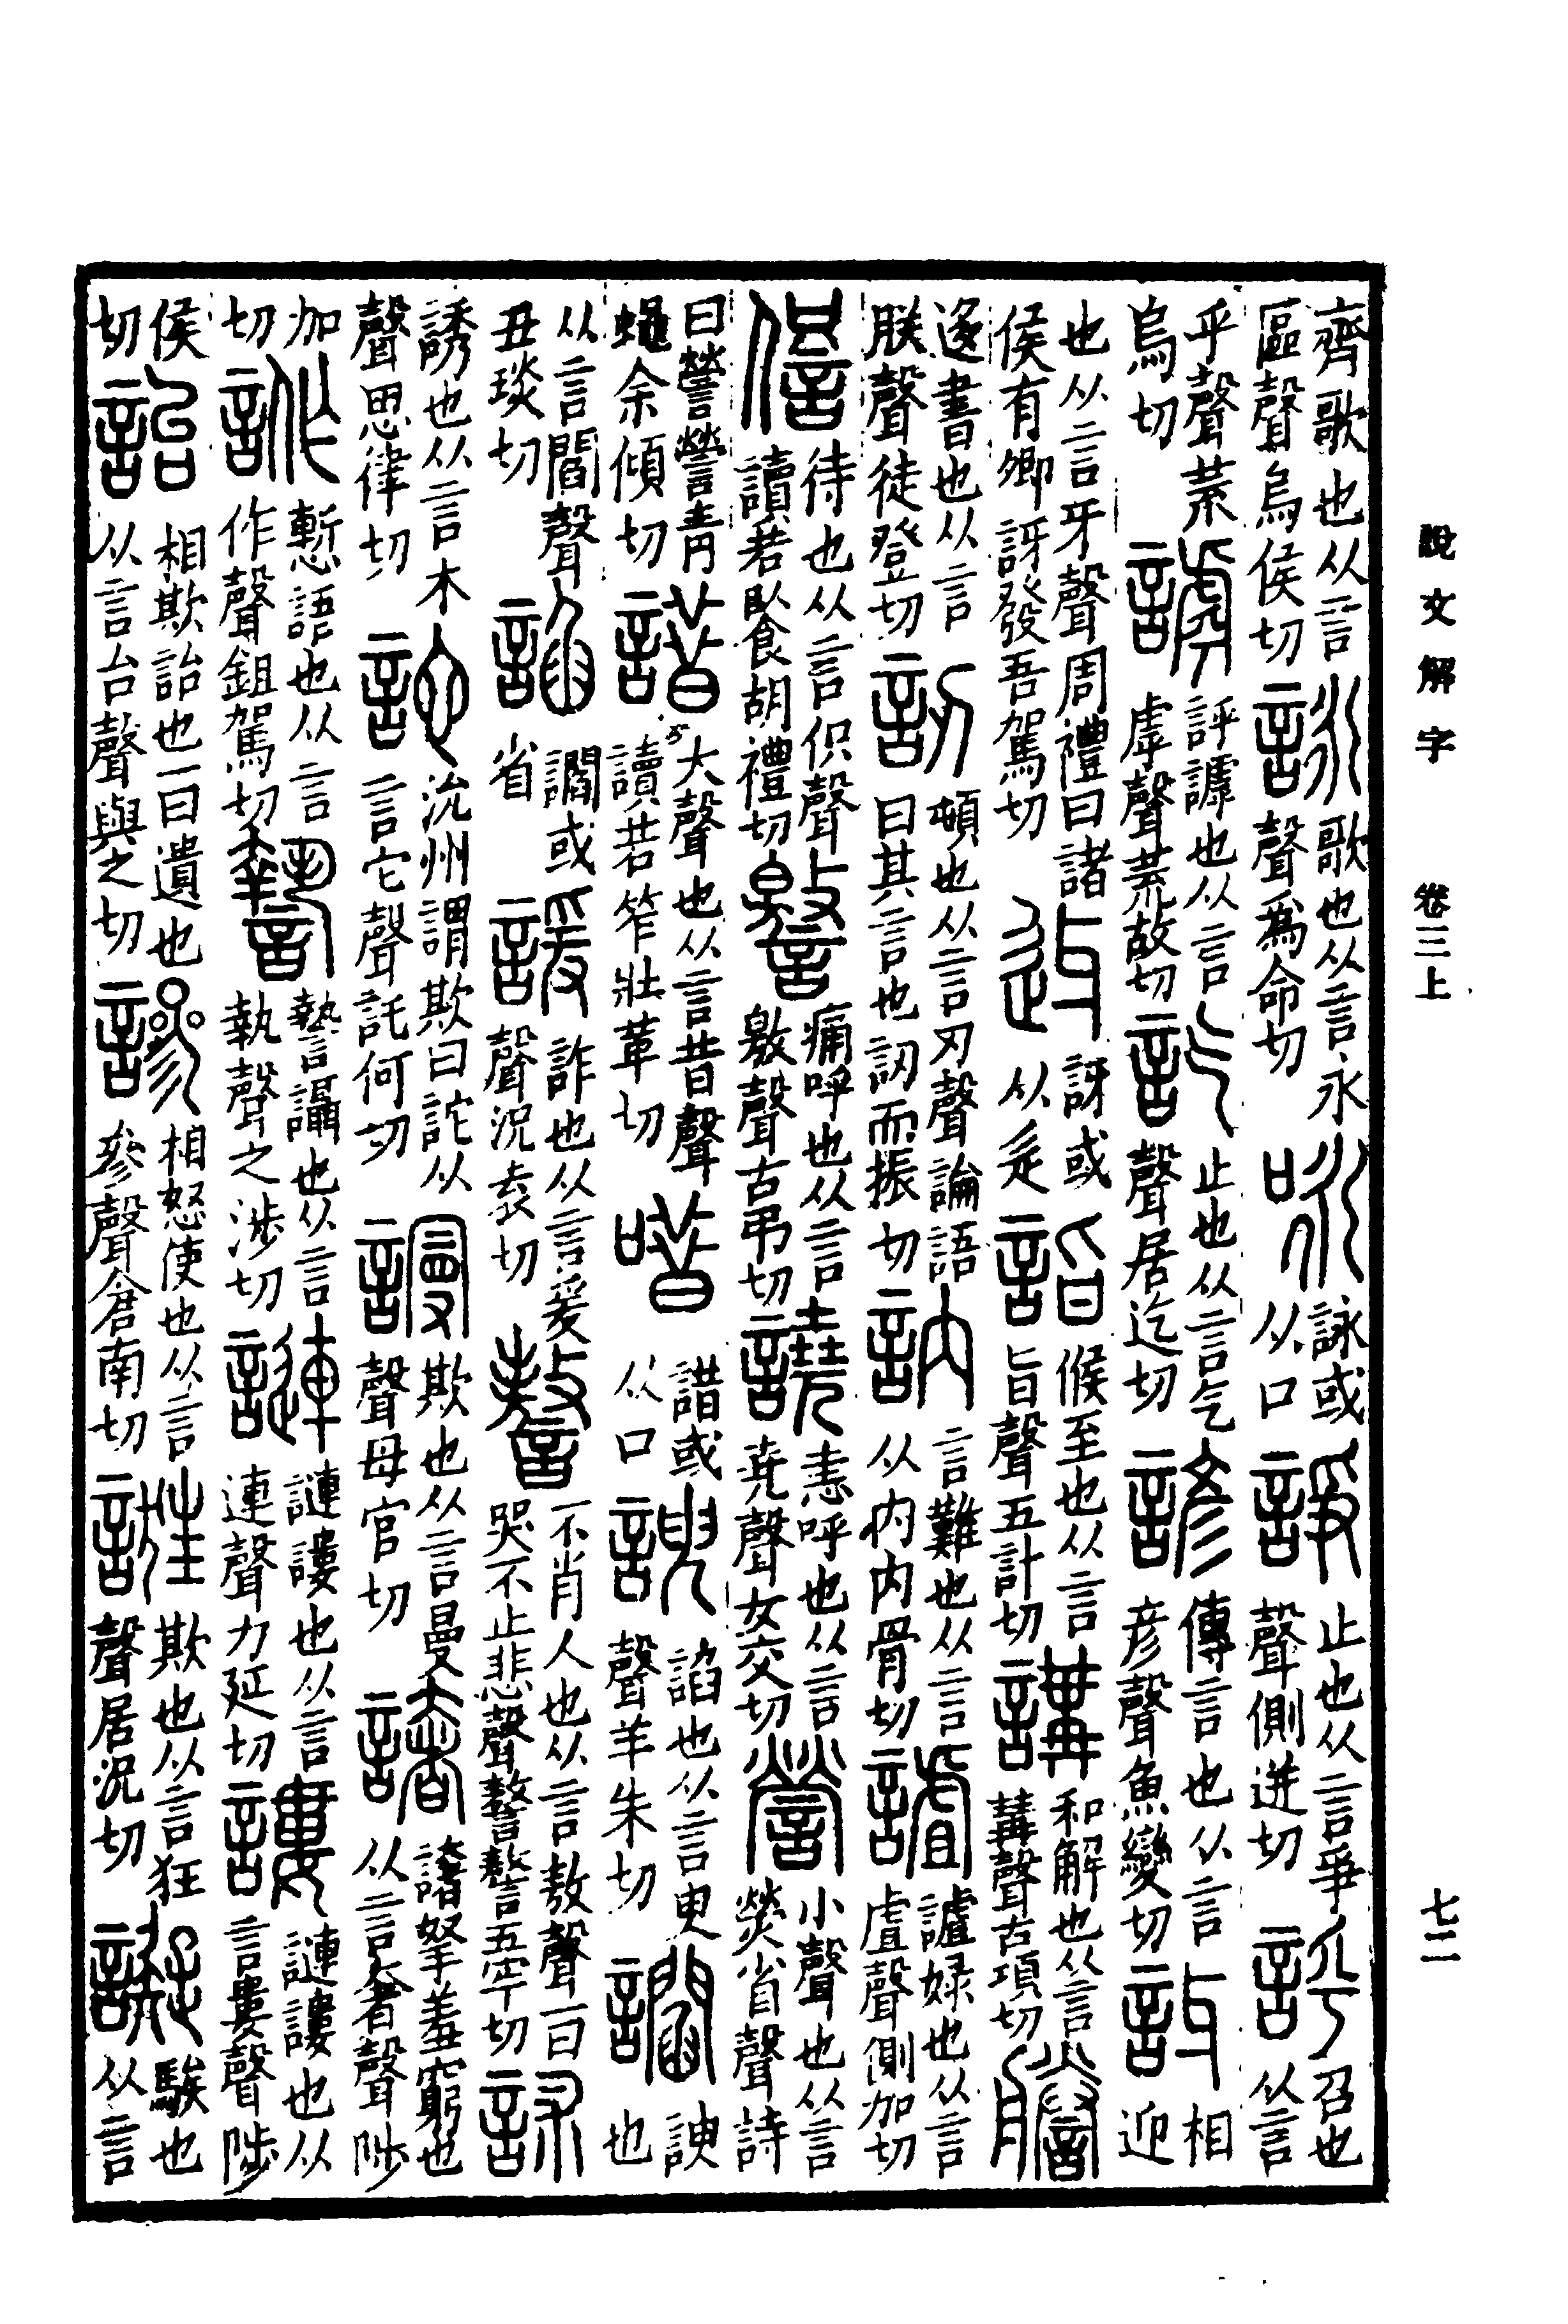 說文解字　卷三上
七二
齊歌也从言區聲烏侯切詠歌也从言永聲爲命切咏詠或从口諍止也从言爭聲側迸切評召也从言
乎聲荒烏切謼評謼也从言虖聲荒故切訖止也从言气聲居迄切諺傳言也从言彥聲魚變切訝相迎
也从言牙聲周禮曰諸侯有卿訝發吾駕切迓訝或从辵詣候至也从言旨聲五計切講和解也从言冓聲古項切謄
迻書也从言朕聲徒登切訒頓也从言刃聲論語曰其言也訒而振切訥言難也从言从內內骨切謯謯娽也从言虘聲側加切
待也从言伿聲讀若胡禮切譥痛呼也从言敫聲古弔切譊恚呼也从言堯聲女交切謍小聲也从言熒省聲詩
曰謍謍青蠅余傾切諎大聲也从言昔聲讀若笮壯革切唶諎或从口諛諂也从言臾聲羊朱切讇諛也
从言閻聲丑琰切諂讇或省諼詐也从言爰聲況袁切謷不肖人也从言敖聲一曰哭不止悲聲謷謷五牢切訹
誘也从言朮聲思律切詑沇州謂欺曰詑从言它聲託何切謾欺也从言曼聲母官切譇譇拏羞窮也从言奢聲陟
加切慙語也从言作聲鉏駕切謺謺讘也从言執聲之涉切謰謰謱也从言連聲力延切謱謰謱也从言婁聲陟
侯切詒相欺詒也一曰遺也从言台聲與之切謲相怒使也从言參聲倉南切誑欺也从言狂聲居況切譺騃也从言